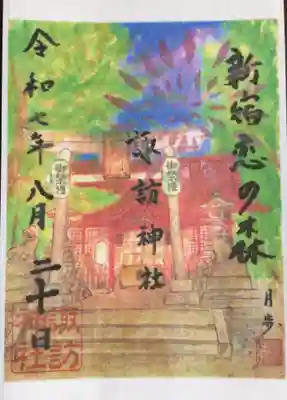 新宿恋の森
月歩
諏訪神社
令和七年八月二十日
御祭禮
御祭禮
諏訪神社